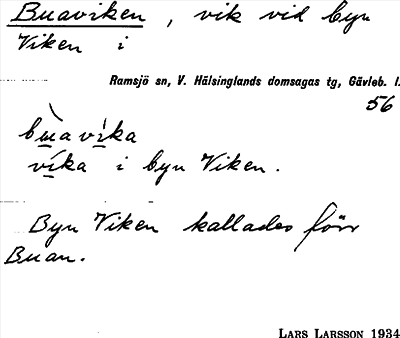 Buaviken, vik vid byn
Viken i
Ramsjö sn, V. Hälsinglands domsagas tg, Gävleb. l.
56
bùavíka
víka i byn Viken.
Byn Viken kallades förr
Buan.
LARS LARSSON 1934